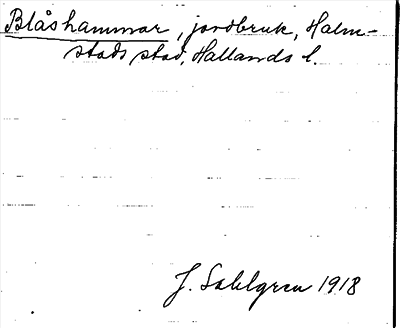 Blåshammar, jordbruk, Halm-
stads stad, Hallands l.
J. Sahlgren 1918